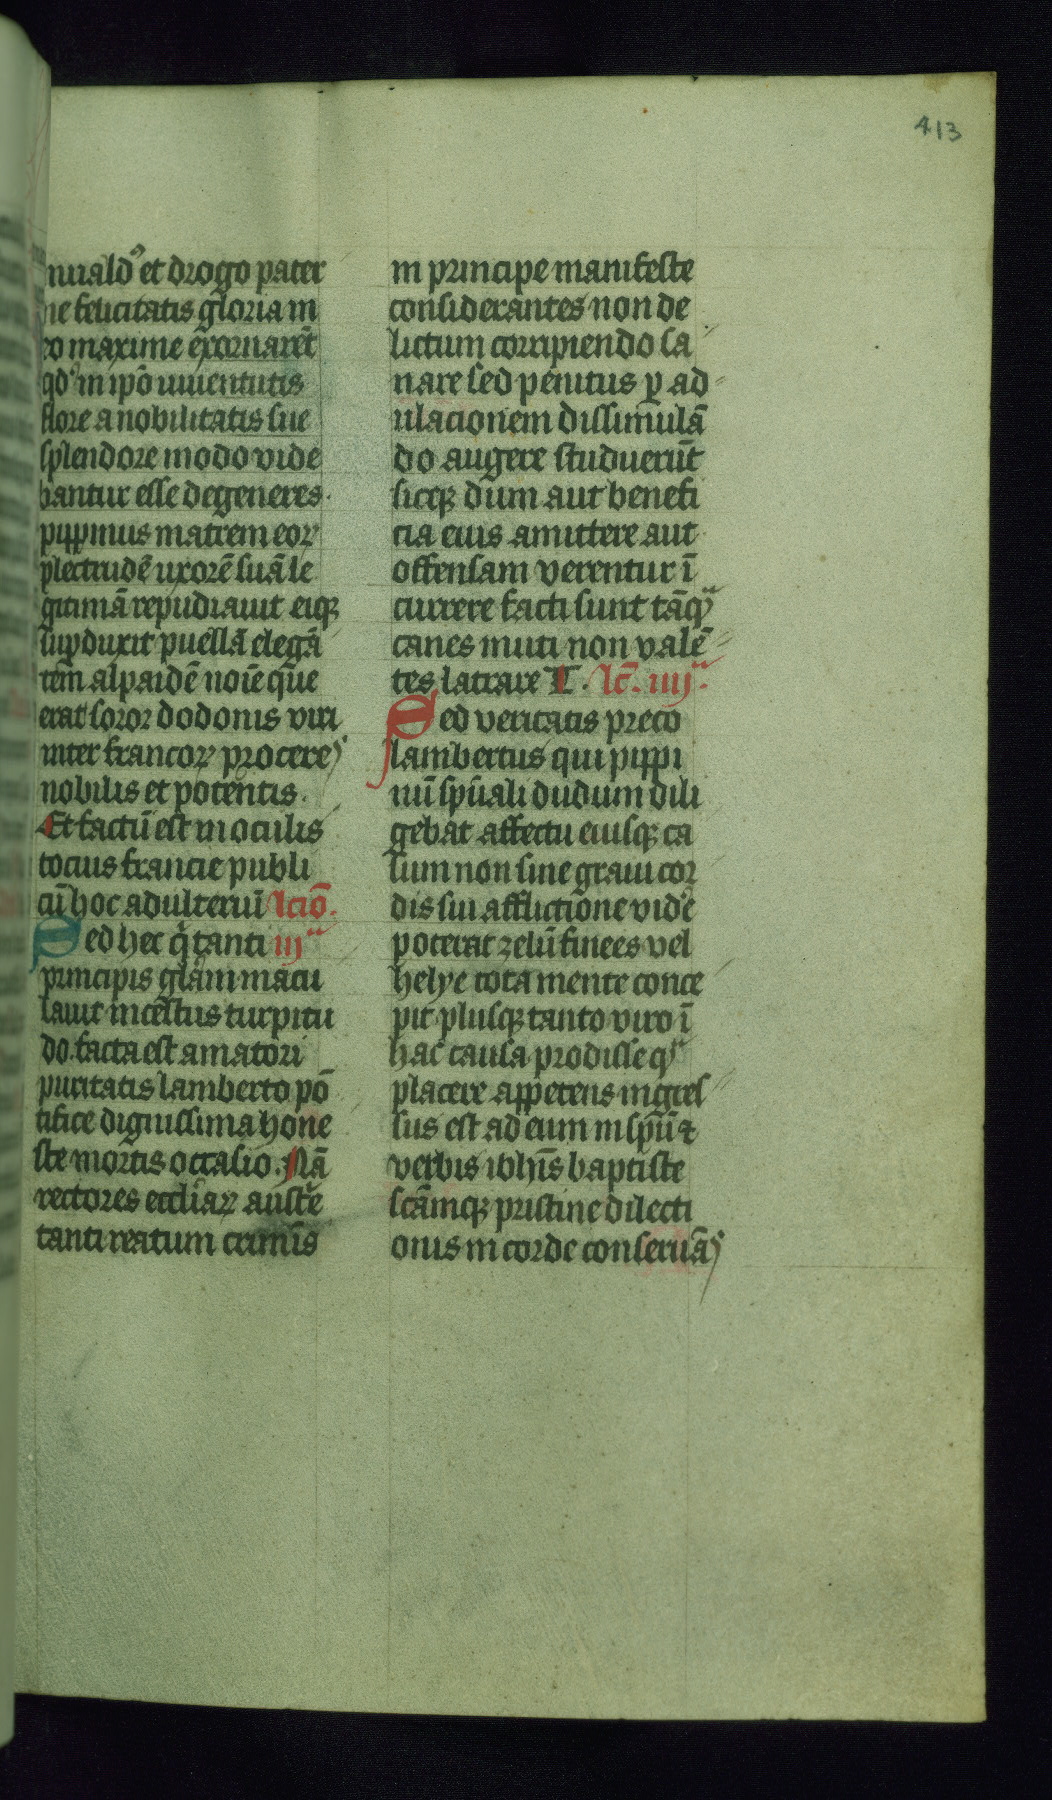 413
nuald9 et drogo pater
ne felicitatis gloria in
eo maxime exornarēt
qd in ipō iuuentutis
flore a nobilitatis sue
splendore modo vide
bantur esse degeneres.
pippinus matrem eoꝝ
plectrudē uxorē suā le
gitimā repudiauit eiqꝫ
supduxit puellā elegā
tem alpaidē noīe que
erat soror dodonis viri
inter francoꝝ procere
nobilis et potentis.
Et factū est in oculis
tocius francie publi
cū hoc adulteriū lcīo.
Sed hec q tanti iij
principis glam macu
lauit incestus turpitu
do. facta est amatori
puritatis lamberto pō
tifice dignissima hone
ste mortis occasio. Nā
rectores eccliaꝝ auste
tanti reatum crimīs
in principe manifeste
considerantes non de
lictum corripiendo sa
nare sed penitus ꝑ ad
ulacionem dissimulā
do augere studuerūt
sicqꝫ dum aut benefi
cia eius amittere aut
offensam verentur ī
currere facti sunt tāqͣ
canes muti non valē
tes latrare T. lc̄. iiij.
Sed veritatis preco
lambertus qui pippi
nū spūali dudum dili
gebat affectu eiusqꝫ ca
sum non sine graui cor
dis sui afflictione vide
poterat zelū finees vel
helye tota mente conce
pit plusqꝫ tanto viro ī
hac causa prodesse qͣ
placere appetens ingres
sus est ad eum in spū ⁊
verbis iohīs baptiste
scāmqꝫ pristine dilecti
onis in corde conseruā